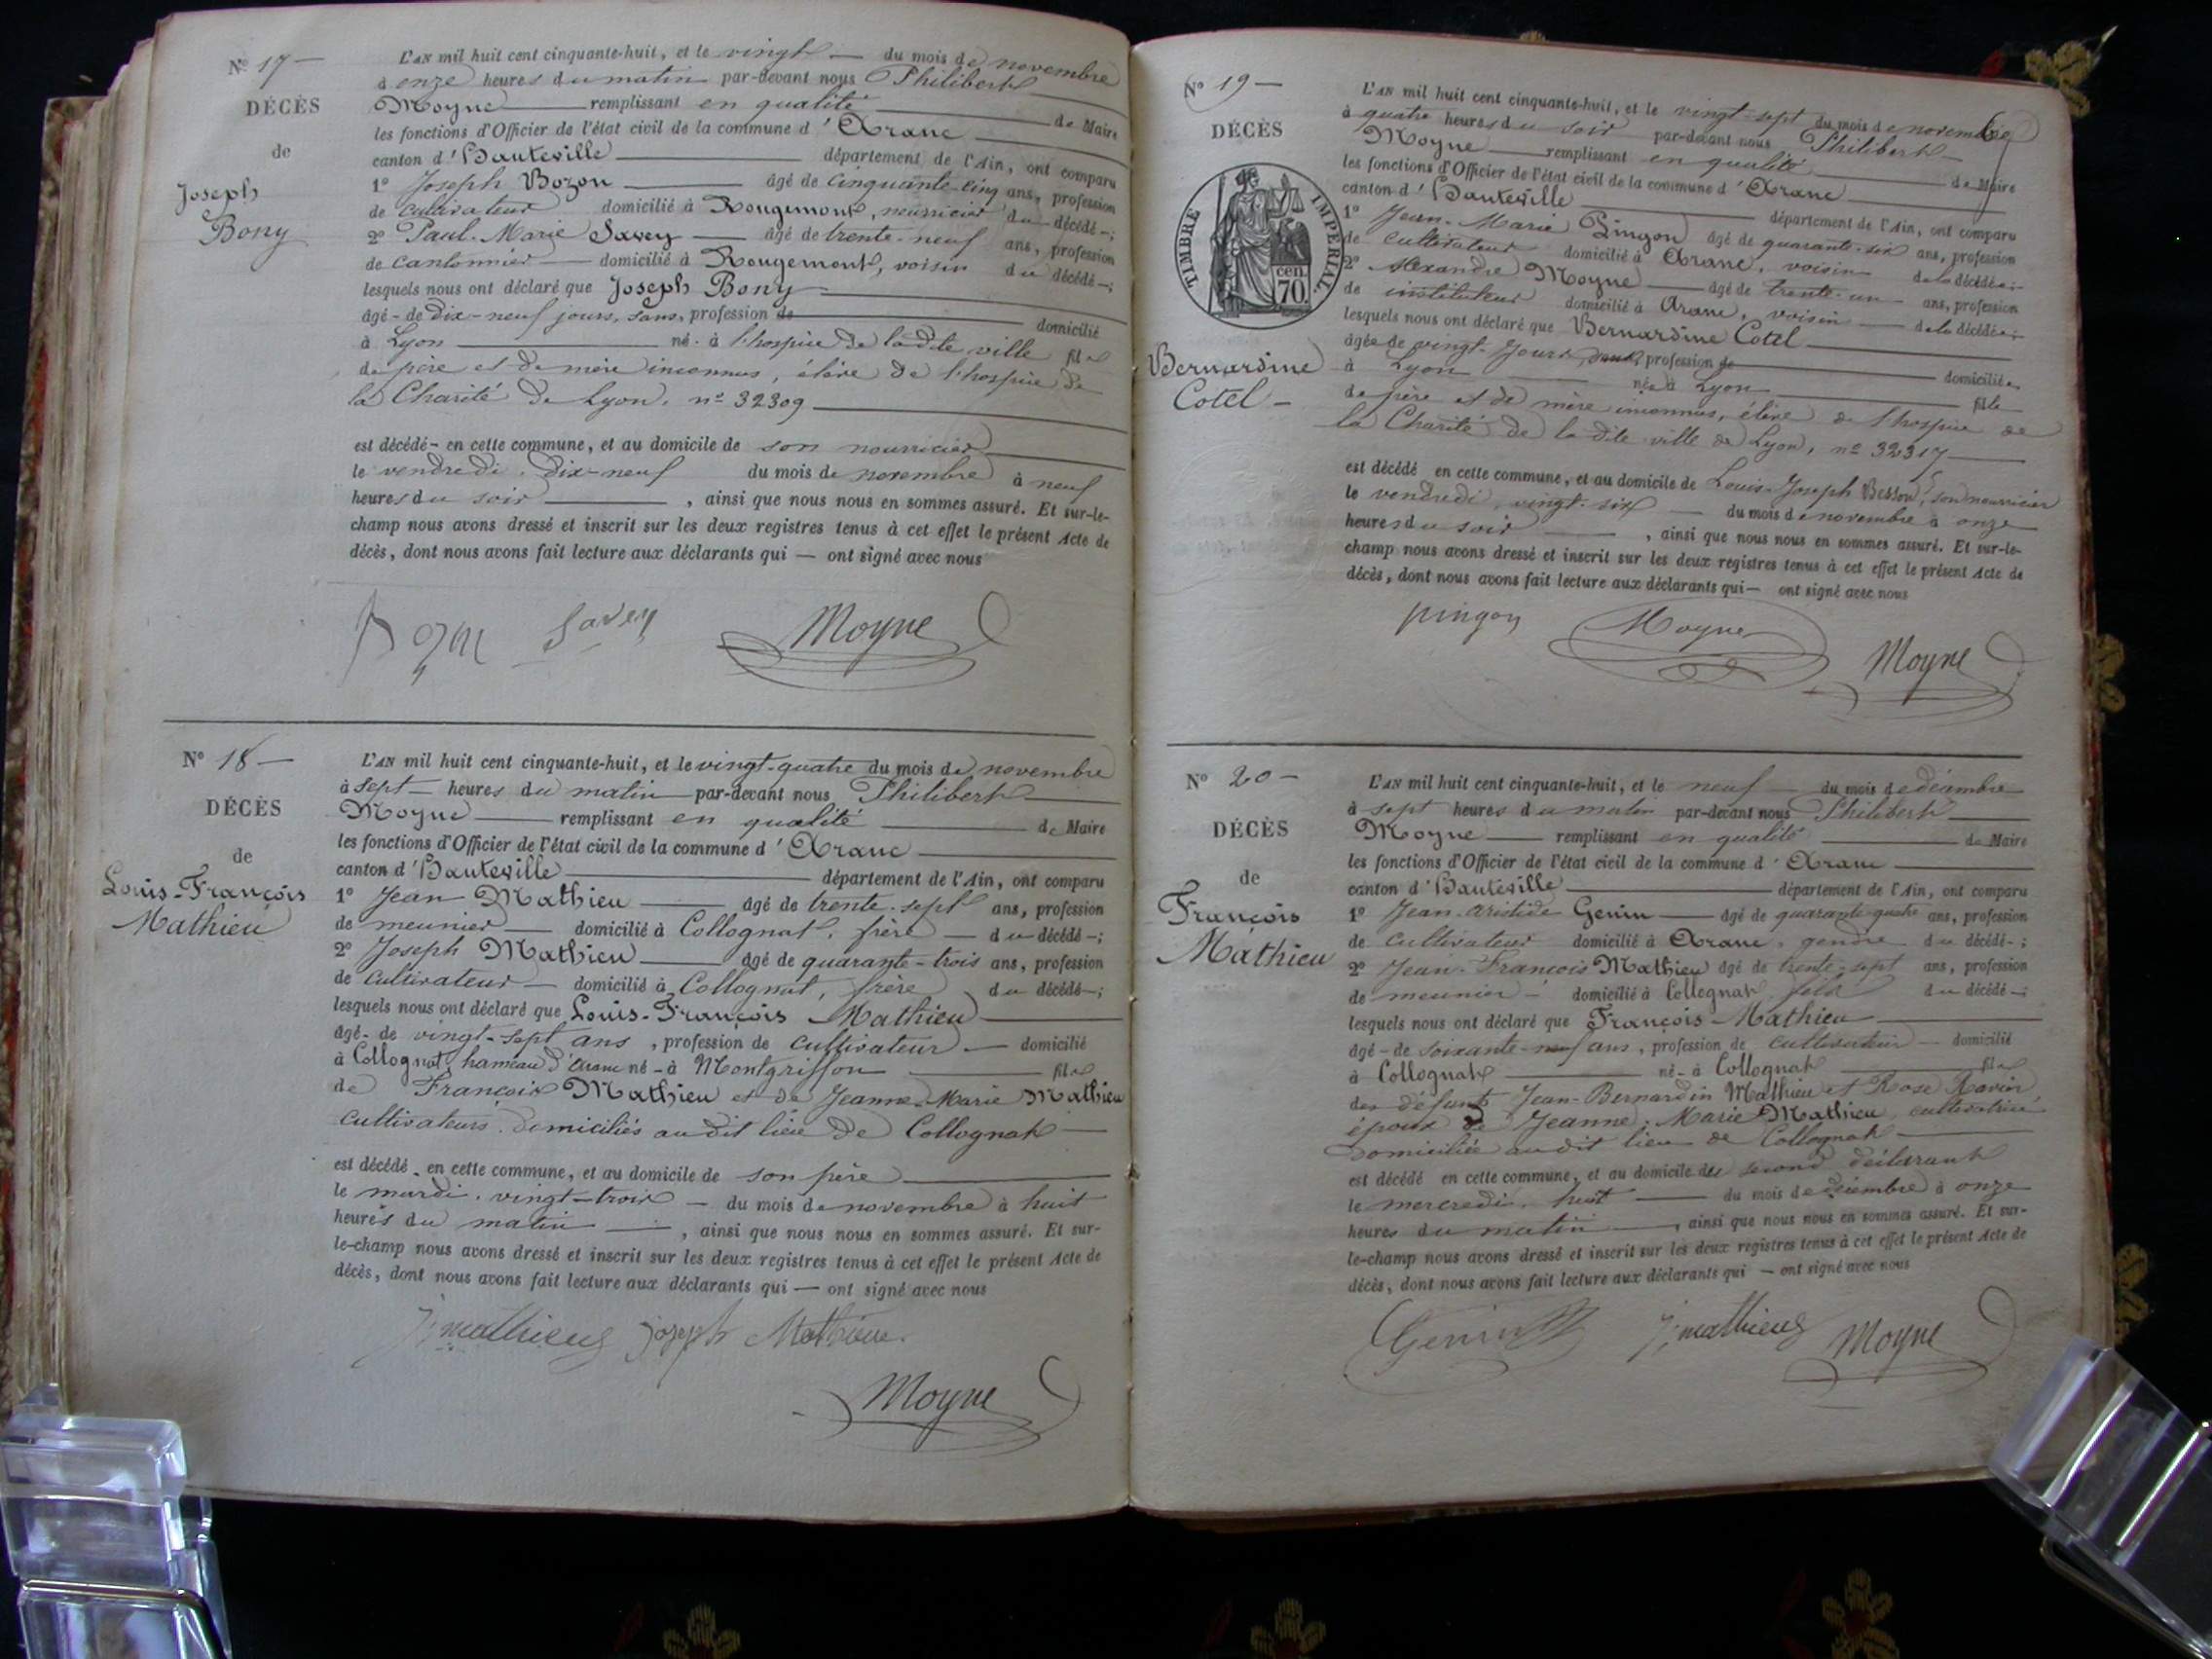 Nº 17 —
DÉCÈS
de
Joseph
Bony
L'AN mil huit cent cinquante-huit, et le vingt — du mois de novembre
à onze heures du matin par-devant nous Philibert
Moyne remplissant en qualité de Maire
les fonctions d'Officier de l'état civil de la commune d'Aranc
canton d'Hauteville département de l'Ain, ont comparu
1º Joseph Bozon âgé de cinquante-cinq ans, profession
de cultivateur domicilié à Rougemont, nourricier du décédé -;
2º Paul-Marie Savey âgé de trente-neuf ans, profession
de cantonnier domicilié à Rougemont, voisin du décédé -;
lesquels nous ont déclaré que Joseph Bony
âgé - de dix-neuf jours, sans, profession de domicilié
à Lyon né - à l'hospice de ladite ville fils
de père et de mère inconnus, élève de l'hospice de
la Charité de Lyon, nº 32309
est décédé - en cette commune, et au domicile de son nourricier
le vendredi, dix-neuf du mois de novembre à neuf
heures du soir , ainsi que nous nous en sommes assuré. Et sur-le-
champ nous avons dressé et inscrit sur les deux registres tenus à cet effet le présent Acte de
décès, dont nous avons fait lecture aux déclarants qui — ont signé avec nous
Savey Moyne
Nº 18 —
DÉCÈS
de
Louis-François
Mathieu
L'AN mil huit cent cinquante-huit, et le vingt-quatre du mois de novembre
à sept heures du matin par-devant nous Philibert
Moyne remplissant en qualité de Maire
les fonctions d'Officier de l'état civil de la commune d'Aranc
canton d'Hauteville département de l'Ain, ont comparu
1º Jean Mathieu âgé de trente-sept ans, profession
de meunier domicilié à Collognat, frère — du décédé -;
2º Joseph Mathieu âgé de quarante-trois ans, profession
de cultivateur domicilié à Collognat, frère du décédé -;
lesquels nous ont déclaré que Louis-François Mathieu
âgé - de vingt-sept ans, profession de cultivateur — domicilié
à Collognat, hameau d'Aranc né - à Montgriffon fils
de François Mathieu et de Jeanne-Marie Mathieu
cultivateurs, domiciliés audit lieu de Collognat
est décédé - en cette commune, et au domicile de son père
le mardi, vingt-trois — du mois de novembre à huit
heures du matin , ainsi que nous nous en sommes assuré. Et sur-
le-champ nous avons dressé et inscrit sur les deux registres tenus à cet effet le présent Acte de
décès, dont nous avons fait lecture aux déclarants qui — ont signé avec nous
J. mathieu joseph Mathieu
Moyne
Nº 19 —
DÉCÈS
TIMBRE IMPÉRIAL
cen. 70.
Bernardine
Cotel —
L'AN mil huit cent cinquante-huit, et le vingt-sept du mois de novembre
à quatre heures du soir par-devant nous Philibert
Moyne remplissant en qualité de Maire
les fonctions d'Officier de l'état civil de la commune d'Aranc
canton d'Hauteville département de l'Ain, ont comparu
1º Jean-Marie Pingon âgé de quarante-six ans, profession
de cultivateur domicilié à Aranc, voisin de la décédée -;
2º Alexandre Moyne âgé de trente-un ans, profession
de instituteur domicilié à Aranc, voisin de la décédée -;
lesquels nous ont déclaré que Bernardine Cotel
âgée de vingt-jours, sans, profession de domiciliée
à Lyon née à Lyon fille
de père et de mère inconnus, élève de l'hospice de
la Charité de la dite ville de Lyon, nº 32317
est décédé en cette commune, et au domicile de Louis-Joseph Besson, son nourricier
le vendredi, vingt-six — du mois de novembre à onze
heures du soir , ainsi que nous nous en sommes assuré. Et sur-le-
champ nous avons dressé et inscrit sur les deux registres tenus à cet effet le présent Acte de
décès, dont nous avons fait lecture aux déclarants qui — ont signé avec nous
pingon Moyne Moyne
Nº 20 —
DÉCÈS
de
François
Mathieu
L'AN mil huit cent cinquante-huit, et le neuf — du mois de décembre
à sept heures du matin par-devant nous Philibert
Moyne remplissant en qualité de Maire
les fonctions d'Officier de l'état civil de la commune d'Aranc
canton d'Hauteville département de l'Ain, ont comparu
1º Jean-Aristide Genin — âgé de quarante-quatre ans, profession
de cultivateur domicilié à Aranc, gendre du décédé -;
2º Jean-François Mathieu âgé de trente-sept ans, profession
de meunier - domicilié à Collognat, fils du décédé -;
lesquels nous ont déclaré que François Mathieu
âgé - de soixante-neuf ans, profession de cultivateur — domicilié
à Collognat né - à Collognat fils
des défunts Jean-Bernardin Mathieu et Rose Ravier
époux de Jeanne-Marie Mathieu, cultivatrice
domiciliée audit lieu de Collognat
est décédé en cette commune, et au domicile du second déclarant
le mercredi, huit du mois de décembre à onze
heures du matin , ainsi que nous nous en sommes assuré. Et sur-
le-champ nous avons dressé et inscrit sur les deux registres tenus à cet effet le présent Acte de
décès, dont nous avons fait lecture aux déclarants qui — ont signé avec nous
Genin J. mathieu Moyne